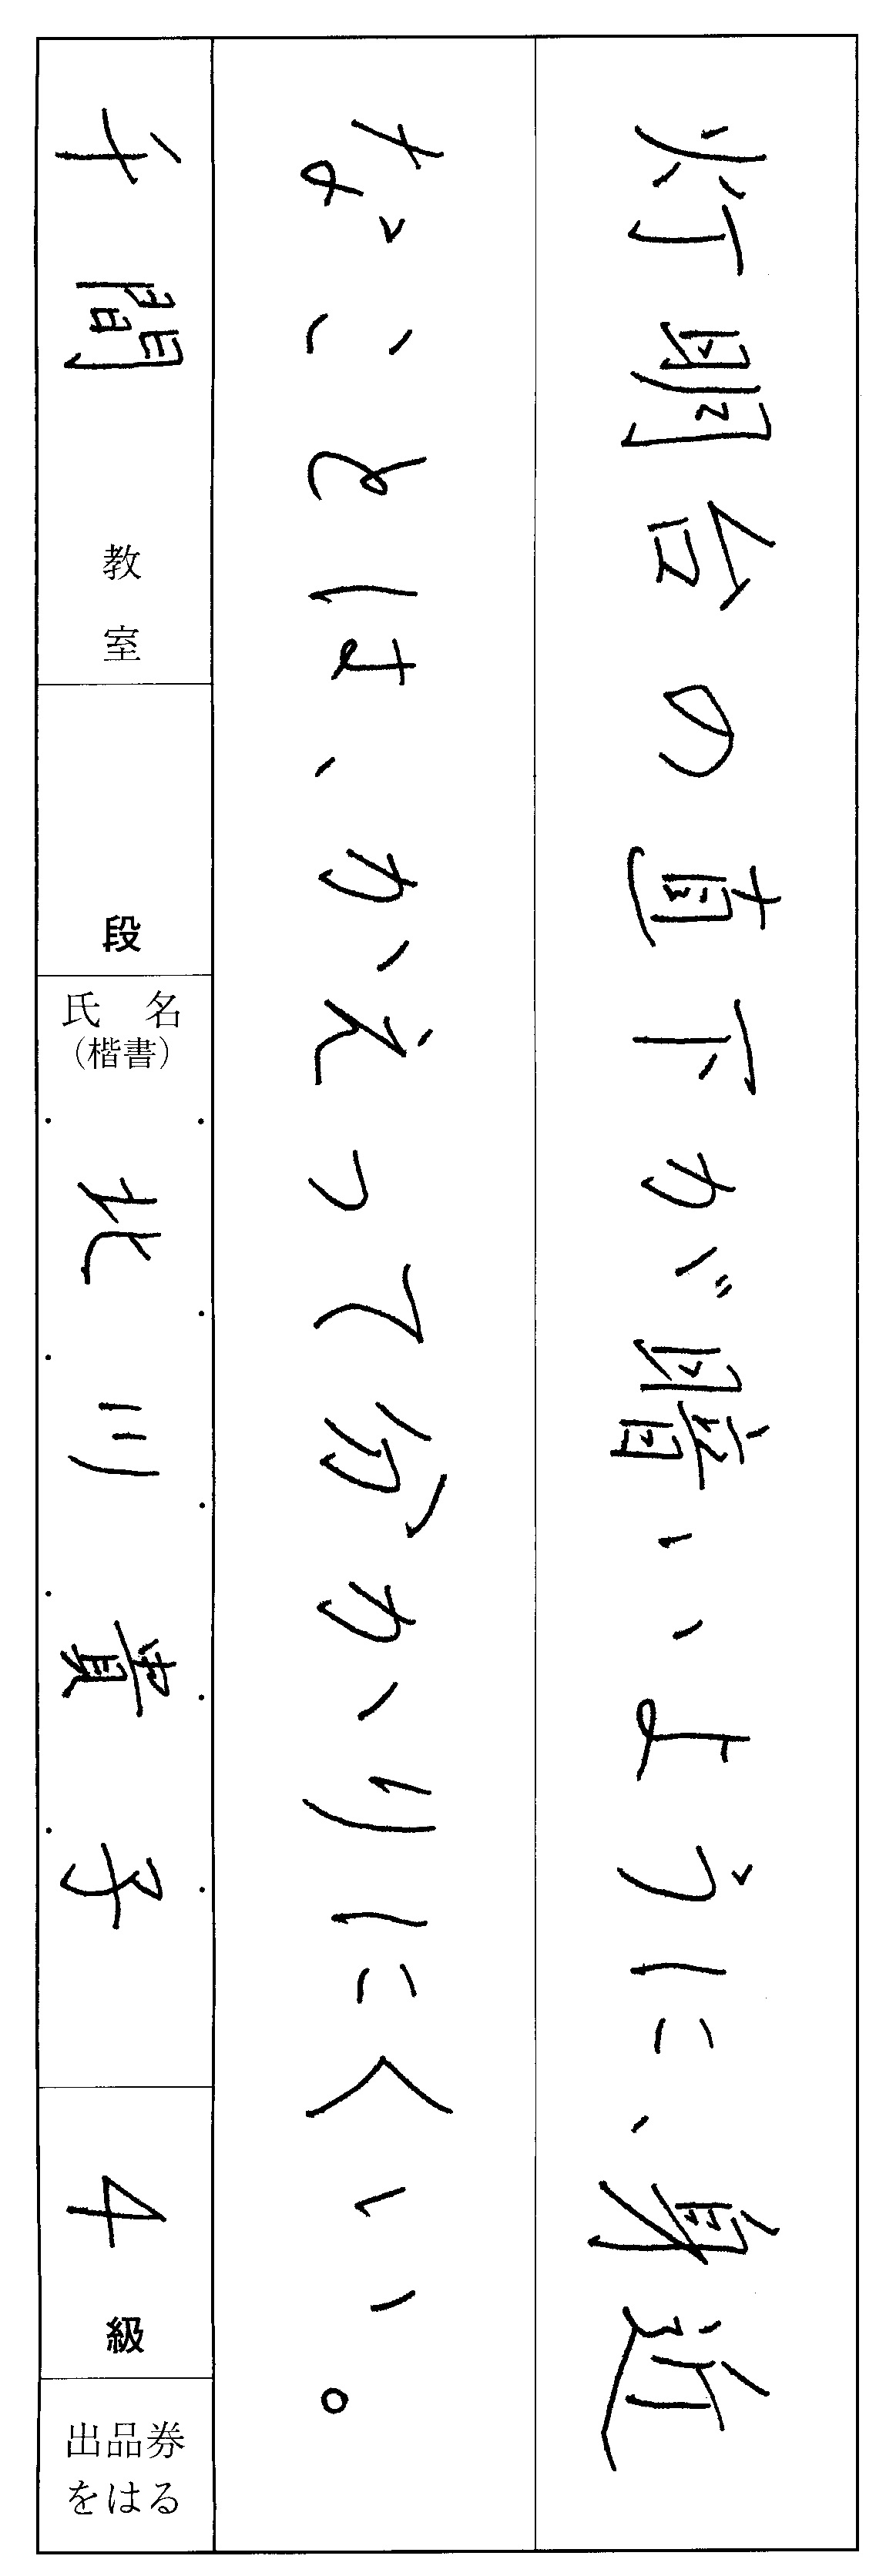 灯明台の直下が暗いように、身近
なことは、かえって分かりにくい。
千間教室
段
氏名
(楷書)
北川貴子
4級
出品券
をはる